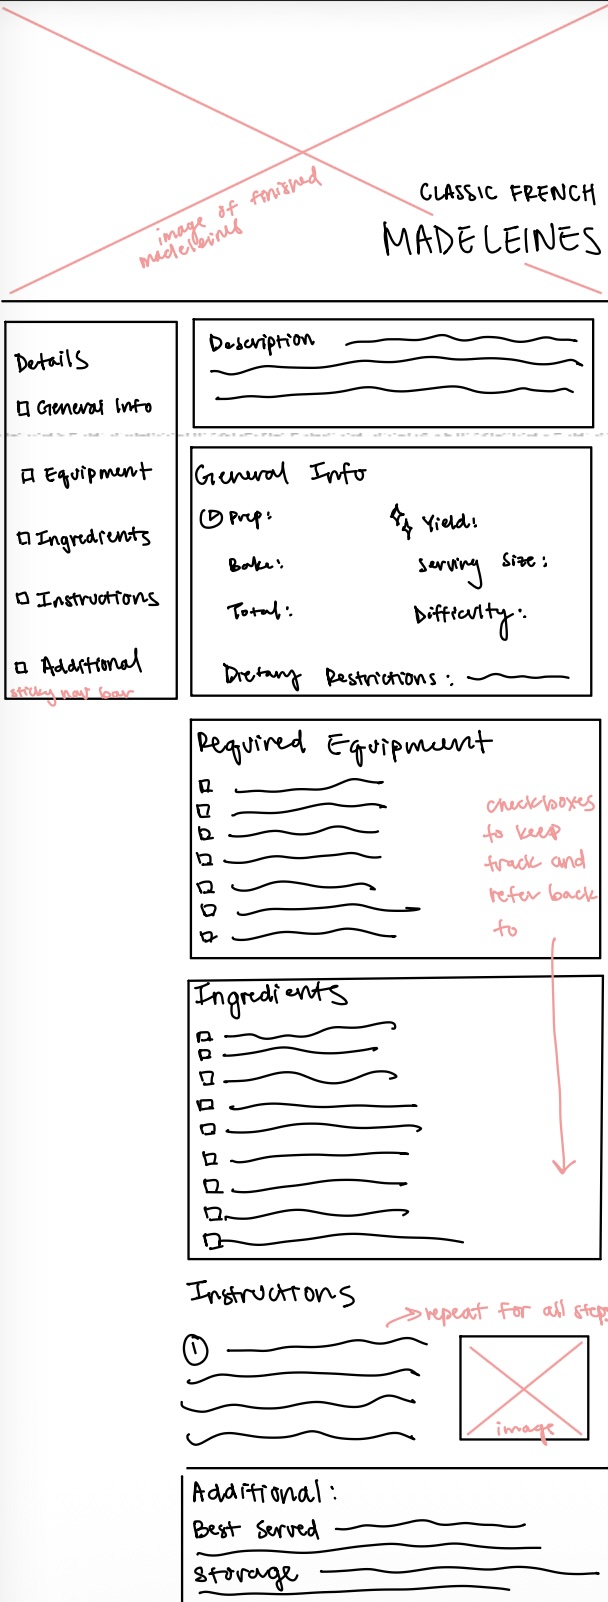 CLASSIC FRENCH
MADELEINES
image of finished
madeleines
Details
General Info
Equipment
Ingredients
Instructions
Additional
sticky nav bar
Description
General Info
Prep:
Yield:
Bake:
Serving Size:
Total:
Difficulty:
Dietary Restrictions:
Required Equipment
checkboxes
to keep
track and
refer back
to
Ingredients
Instructions
repeat for all steps
1
image
Additional:
Best Served
Storage